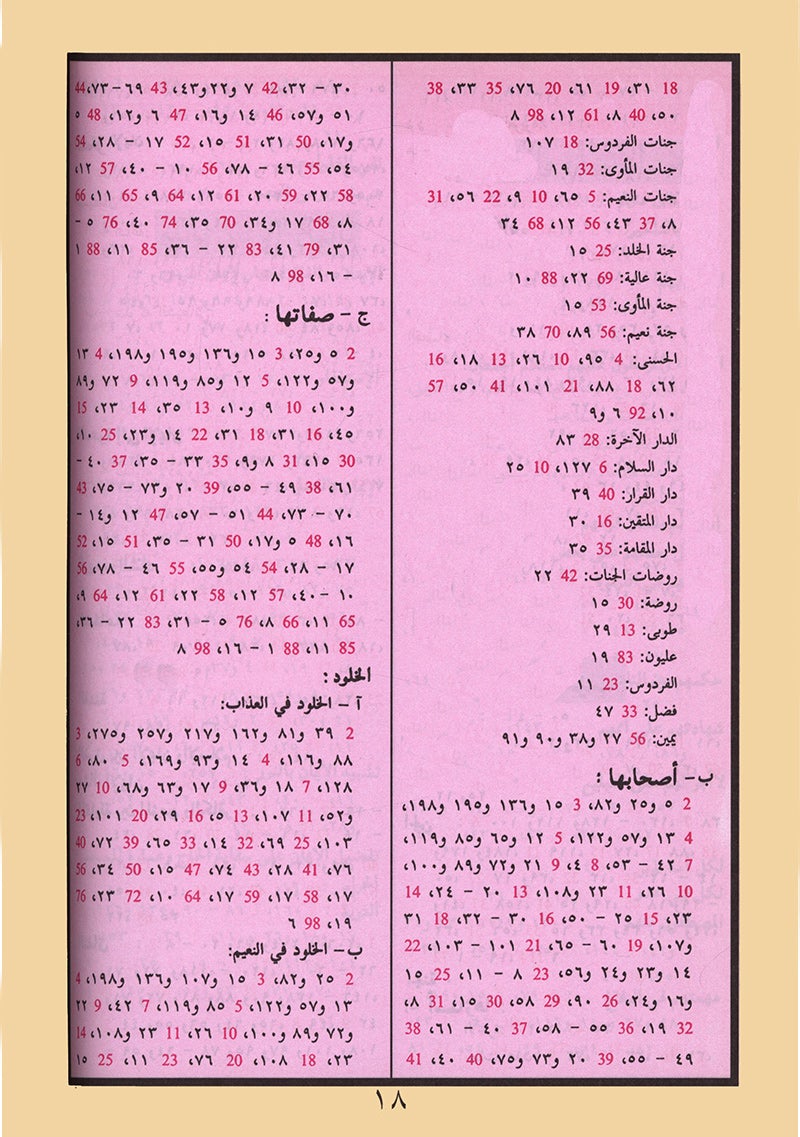 18 ٣١، 19 ٦١، 20 ٧٦، 35 ٣٣، 38
٥٠، 40 ٨، 61 ١٢، 98 ٨
جنات الفردوس: 18 ١٠٧
جنات المأوى: 32 ١٩
جنات النعيم: 5 ٦٥، 10 ٩، 22 ٥٦، 31
٨، 37 ٤٣، 56 ١٢، 68 ٣٤
جنة الخلد: 25 ١٥
جنة عالية: 69 ٢٢، 88 ١٠
جنة المأوى: 53 ١٥
جنة نعيم: 56 ٨٩، 70 ٣٨
الحسنى: 4 ٩٥، 10 ٢٦، 13 ١٨، 16
٦٢، 18 ٨٨، 21 ١٠١، 41 ٥٠، 57
١٠، 92 ٦ و٩
الدار الآخرة: 28 ٨٣
دار السلام: 6 ١٢٧، 10 ٢٥
دار القرار: 40 ٣٩
دار المتقين: 16 ٣٠
دار المقامة: 35 ٣٥
روضات الجنات: 42 ٢٢
روضة: 30 ١٥
طوبى: 13 ٢٩
عليون: 83 ١٩
الفردوس: 23 ١١
فضل: 33 ٤٧
يمين: 56 ٢٧ و٣٨ و٩٠ و٩١
ب- أصحابها:
2 ٥ و٢٥ و٨٢، 3 ١٥ و١٣٦ و١٩٥ و١٩٨،
4 ١٣ و٥٧ و١٢٢، 5 ١٢ و٦٥ و٨٥ و١١٩،
7 ٤٢ - ٥٣، 8 ٤، 9 ٢١ و٧٢ و٨٩ و١٠٠،
10 ٢٦، 11 ٢٣ و١٠٨، 13 ٢٠ - ٢٤، 14
٢٣، 15 ٢٥ - ٥٠، 16 ٣٠ - ٣٢، 18 ٣١
و١٠٧، 19 ٦٠ - ٦٥، 21 ١٠١ - ١٠٣، 22
١٤ و٢٣ و٢٤ و٥٦، 23 ٨ - ١١، 25 ١٥
و١٦ و٢٤، 26 ٩٠، 29 ٥٨، 30 ١٥، 31 ٨،
32 ١٩، 36 ٥٥ - ٥٨، 37 ٤٠ - ٦١، 38
٤٩ - ٥٥، 39 ٢٠ و٧٣ و٧٥، 40 ٤٠، 41
٣٠ - ٣٢، 42 ٧ و٢٢ و٤٣، 43 ٦٩ - ٧٣، 44
٥١ و٥٧، 46 ١٤ و١٦، 47 ٦ و١٢، 48 ٥
و١٧، 50 ٣١، 51 ١٥، 52 ١٧ - ٢٨، 54
٥٤، 55 ٤٦ - ٧٨، 56 ١٠ - ٤٠، 57 ١٢،
58 ٢٢، 59 ٢٠، 61 ١٢، 64 ٩، 65 ١١، 66
٨، 68 ١٧ و٣٤، 70 ٣٥، 74 ٤٠، 76 ٥ -
٣١، 79 ٤١، 83 ٢٢ - ٣٦، 85 ١١، 88 ١
- ١٦، 98 ٨
ج- صفاتها:
2 ٥ و٢٥، 3 ١٥ و١٣٦ و١٩٥ و١٩٨، 4 ١٣
و٥٧ و١٢٢، 5 ١٢ و٨٥ و١١٩، 9 ٧٢ و٨٩
و١٠٠، 10 ٩ و١٠، 13 ٣٥، 14 ٢٣، 15
٤٥، 16 ٣١، 18 ٣١، 22 ١٤ و٢٣، 25 ١٠،
30 ١٥، 31 ٨ و٩، 35 ٣٣ - ٣٥، 37 ٤٠ -
٦١، 38 ٤٩ - ٥٥، 39 ٢٠ و٧٣ - ٧٥، 43
٧٠ - ٧٣، 44 ٥١ - ٥٧، 47 ١٢ و١٤ -
١٦، 48 ٥ و١٧، 50 ٣١ - ٣٥، 51 ١٥، 52
١٧ - ٢٨، 54 ٥٤ و٥٥، 55 ٤٦ - ٧٨، 56
١٠ - ٤٠، 57 ١٢، 58 ٢٢، 61 ١٢، 64 ٩،
65 ١١، 66 ٨، 76 ٥ - ٣١، 83 ٢٢ - ٣٦،
85 ١١، 88 ١ - ١٦، 98 ٨
الخلود:
آ - الخلود في العذاب:
2 ٣٩ و٨١ و١٦٢ و٢١٧ و٢٥٧ و٢٧٥، 3
٨٨ و١١٦، 4 ١٤ و٩٣ و١٦٩، 5 ٨٠، 6
١٢٨، 7 ١٨ و٣٦، 9 ١٧ و٦٣ و٦٨، 10 ٢٧
و٥٢، 11 ١٠٧، 13 ٥، 16 ٢٩، 20 ١٠١، 23
١٠٣، 25 ٦٩، 32 ١٤، 33 ٦٥، 39 ٧٢، 40
٧٦، 41 ٢٨، 43 ٧٤، 47 ١٥، 50 ٣٤، 56
١٧، 58 ١٧، 59 ١٧، 64 ١٠، 72 ٢٣، 76
١٩، 98 ٦
ب- الخلود في النعيم:
2 ٢٥ و٨٢، 3 ١٥ و١٠٧ و١٣٦ و١٩٨، 4
١٣ و٥٧ و١٢٢، 5 ٨٥ و١١٩، 7 ٤٢، 9 ٢٢
و٧٢ و٨٩ و١٠٠، 10 ٢٦، 11 ٢٣ و١٠٨، 14
٢٣، 18 ١٠٨، 20 ٧٦، 23 ١١، 25 ١٥
١٨